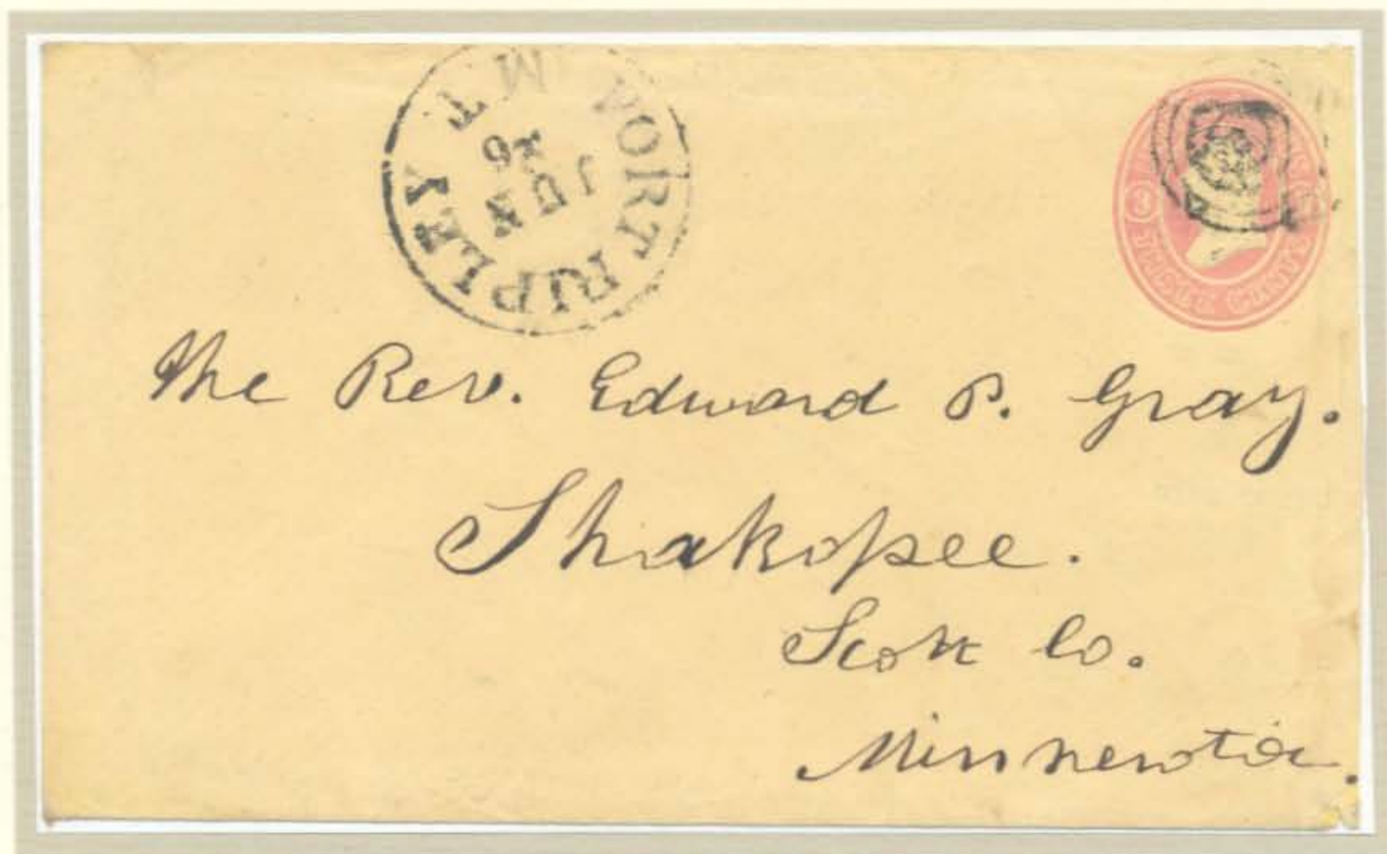 FORT RIPLEY M T
JUN
3
THREE CENTS
The Rev. Edward P. Gray.
Shakopee.
Scott Co.
Minnesota.